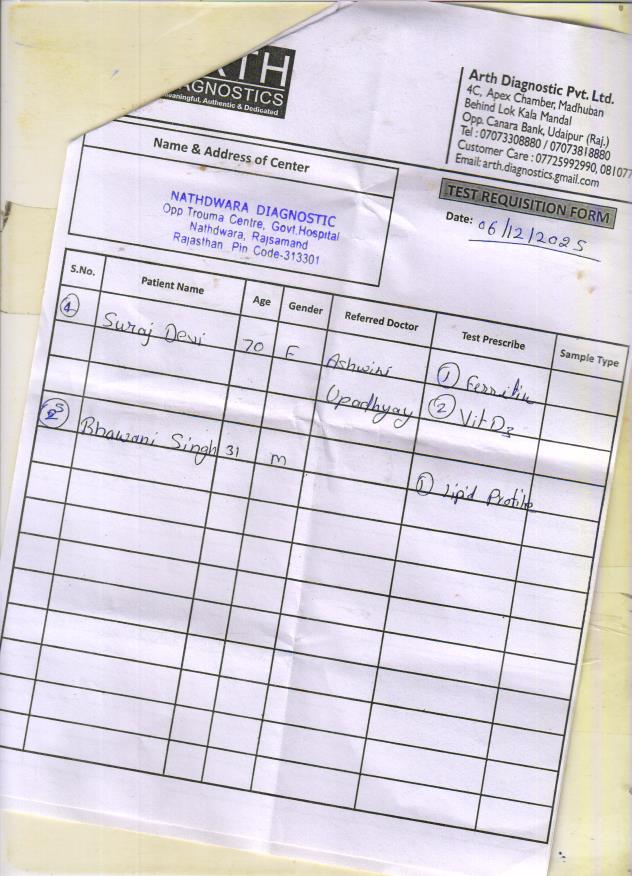 ARTH
DIAGNOSTICS
Meaningful, Authentic & Dedicated
Arth Diagnostic Pvt. Ltd.
4C, Apex Chamber, Madhuban
Behind Lok Kala Mandal
Opp. Canara Bank, Udaipur (Raj.)
Tel : 07073308880 / 07073818880
Customer Care : 07725992990, 081077
Email: arth.diagnostics.gmail.com
Name & Address of Center
NATHDWARA DIAGNOSTIC
Opp Trouma Centre, Govt.Hospital
Nathdwara, Rajsamand
Rajasthan Pin Code-313301
TEST REQUISITION FORM
Date: 06/12/2025
S.No. Patient Name Age Gender Referred Doctor Test Prescribe Sample Type
Suraj Devi 70 F Ashwini ① Ferritin
Upadhyay ② Vit D3
Bhawani Singh 31 m
① Lipid Profile